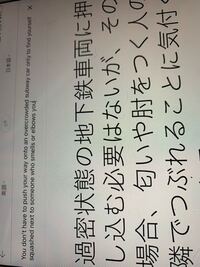 英語
日本語
You don't have to push your way onto an overcrowded subway car only to find yourself
squashed next to someone who smells or elbows you
過密状態の地下鉄車両に押
し込む必要はないが、その
場合、匂いや肘をつく人の
隣でつぶれることに気付く